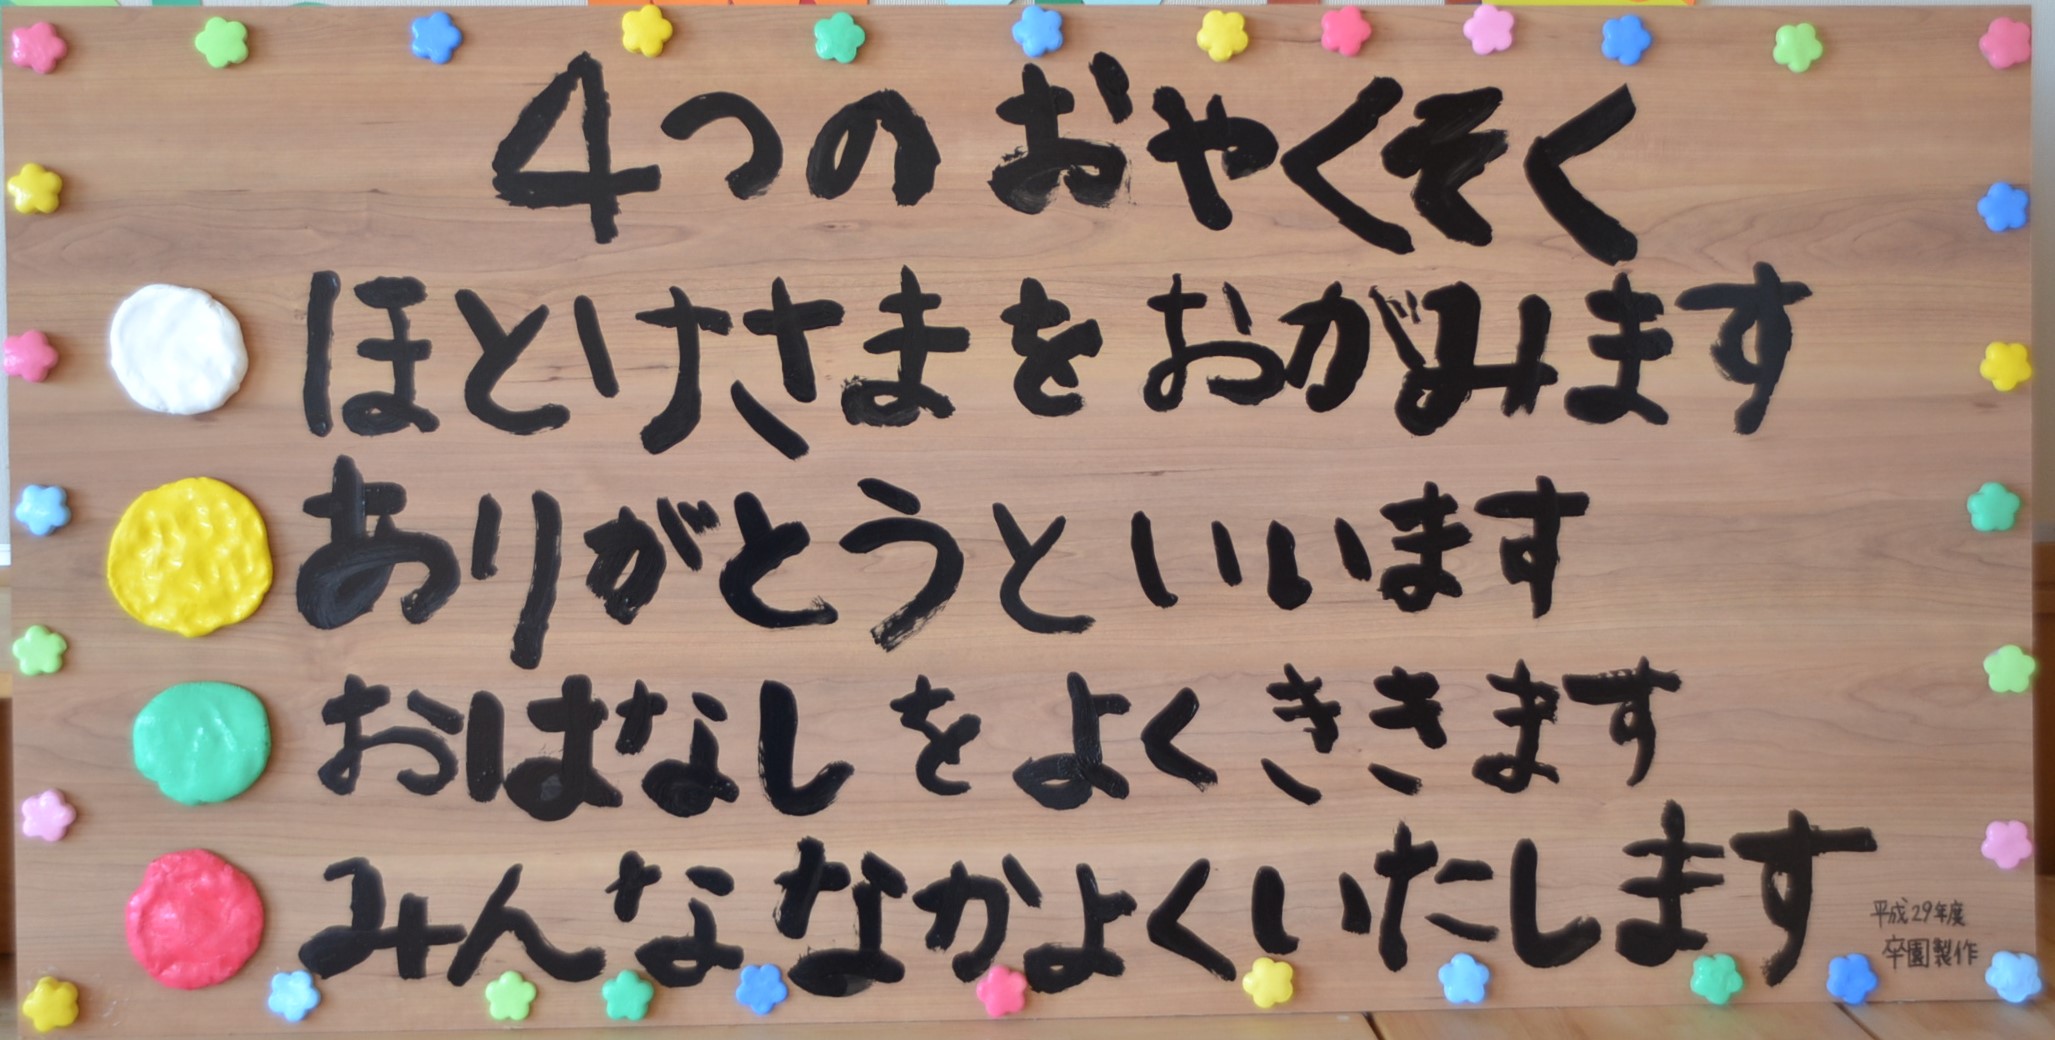 4つのおやくそく
ほとけさまをおがみます
ありがとうといいます
おはなしをよくききます
みんななかよくいたします
平成29年度
卒園製作